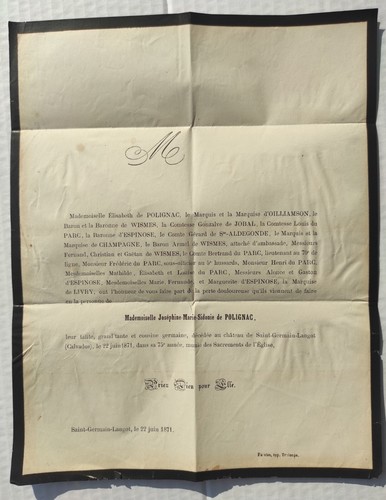 M
Mademoiselle Elisabeth de POLIGNAC, le Marquis et la Marquise d'OILLIAMSON, le
Baron et la Baronne de WISMES, la Comtesse Gonzalve de JOBAL, la Comtesse Louis du
PARC, la Baronne d'ESPINOSE, le Comte Gérard de Ste-ALDEGONDE, le Marquis et la
Marquise de CHAMPAGNE, le Baron Armel de WISMES, attaché d'ambassade, Messieurs
Fernand, Christian et Gaëtan de WISMES, le Comte Bertrand du PARC, lieutenant au 70e de
ligne, Monsieur Frédéric du PARC, sous-officier au 8e hussards, Monsieur Henri du PARC,
Mesdemoiselles Mathilde, Elisabeth et Louise du PARC, Messieurs Alonce et Gaston
d'ESPINOSE, Mesdemoiselles Marie Fernande et Marguerite d'ESPINOSE, la Marquise
de LIVRY, ont l'honneur de vous faire part de la perte douloureuse qu'ils viennent de faire
en la personne de
Mademoiselle Joséphine-Marie-Sidonie de POLIGNAC,
leur tante, grand'tante et cousine germaine, décédée au château de Saint-Germain-Langot
(Calvados), le 22 juin 1871, dans sa 75e année, munie des Sacrements de l'Église,
Priez Dieu pour Elle.
Saint-Germain-Langot, le 22 juin 1871.
Falaise, imp.